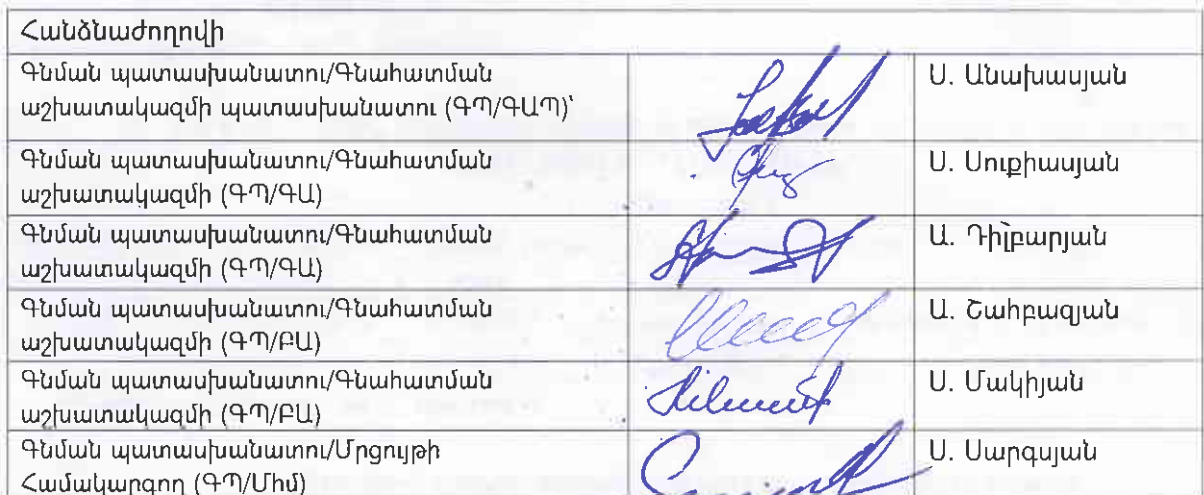 Հանձնաժողովի
Գնման պատասխանատու/Գնահատման
աշխատակազմի պատասխանատու (ԳՊ/ԳԱՊ)՝
Ս. Անախասյան
Գնման պատասխանատու/Գնահատման
աշխատակազմի (ԳՊ/ԳԱ)
Ս. Սուքիասյան
Գնման պատասխանատու/Գնահատման
աշխատակազմի (ԳՊ/ԳԱ)
Ա. Դիլբարյան
Գնման պատասխանատու/Գնահատման
աշխատակազմի (ԳՊ/ԲԱ)
Ա. Շահբազյան
Գնման պատասխանատու/Գնահատման
աշխատակազմի (ԳՊ/ԲԱ)
Ս. Մակիյան
Գնման պատասխանատու/Մրցույթի
Համակարգող (ԳՊ/Մհմ)
Ս. Սարգսյան